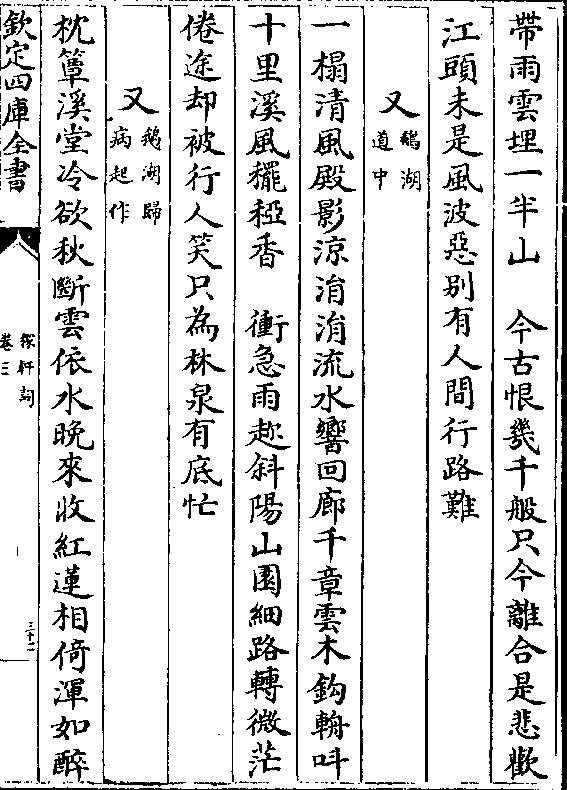 帶雨雲埋一半山　今古恨幾千般只今離合是悲歡
江頭未是風波惡别有人間行路難
又鵝湖道中
一榻清風殿影涼涓涓流水響回廊千章雲木鈎輈呌
十里溪風䆉稏香　衝急雨趂斜陽山園細路轉微茫
倦途却被行人笑只為林泉有底忙
又鵝湖歸病起作
枕簟溪堂冷欲秋斷雲依水晚來收紅蓮相倚渾如醉
欽定四庫全書
稼軒詞
卷三
三十二